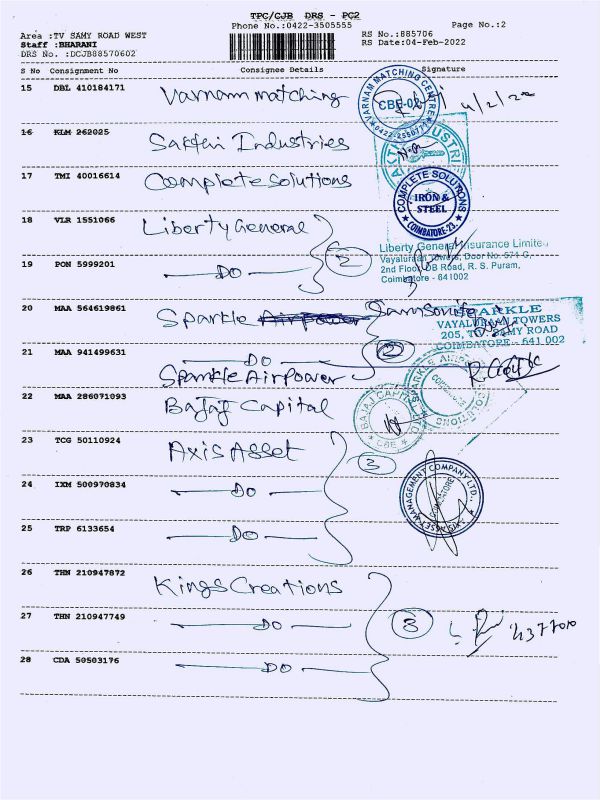 TPC/CJB DRS - PC2
Phone No.:0422-3505555
Page No.:2
Area :TV SAMY ROAD WEST
Staff :BHARANI
DRS No. :DCJB88570602
RS No.:885706
RS Date:04-Feb-2022
S No Consignment No Consignee Details Signature
15 DBL 410184171 Varnam Matching
VARNAM MATCHING CENTRE
CBE-02
0422-2550777
4/2/22
16 KLM 262025 Sakthi Industries
17 TMI 40016614 Complete Solutions
COMPLETE SOLUTIONS
IRON &
STEEL
COIMBATORE-23
18 VLR 1551066 Liberty General
2
Liberty General Insurance Limited
Vayaluraan Towers, Door No. 571-C,
2nd Floor, DB Road, R. S. Puram,
Coimbatore - 641002
19 PON 5999201 DO
20 MAA 564619861 Sparkle Airpower Samsonite
SPARKLE
VAYALURAAN TOWERS
205, T.V. SAMY ROAD
COIMBATORE - 641 002
21 MAA 941499631 DO
2
Sparkle Airpower
22 MAA 286071093 Bajaj Capital
BAJAJ CAPITAL LTD
CBE
23 TCG 50110924 Axis Asset
3
24 IXM 500970834 DO
AXIS ASSET MANAGEMENT COMPANY LTD.
COIMBATORE
25 TRP 6133654 DO
26 THN 210947872 Kings Creations
27 THN 210947749 DO
3
28 CDA 50503176 DO